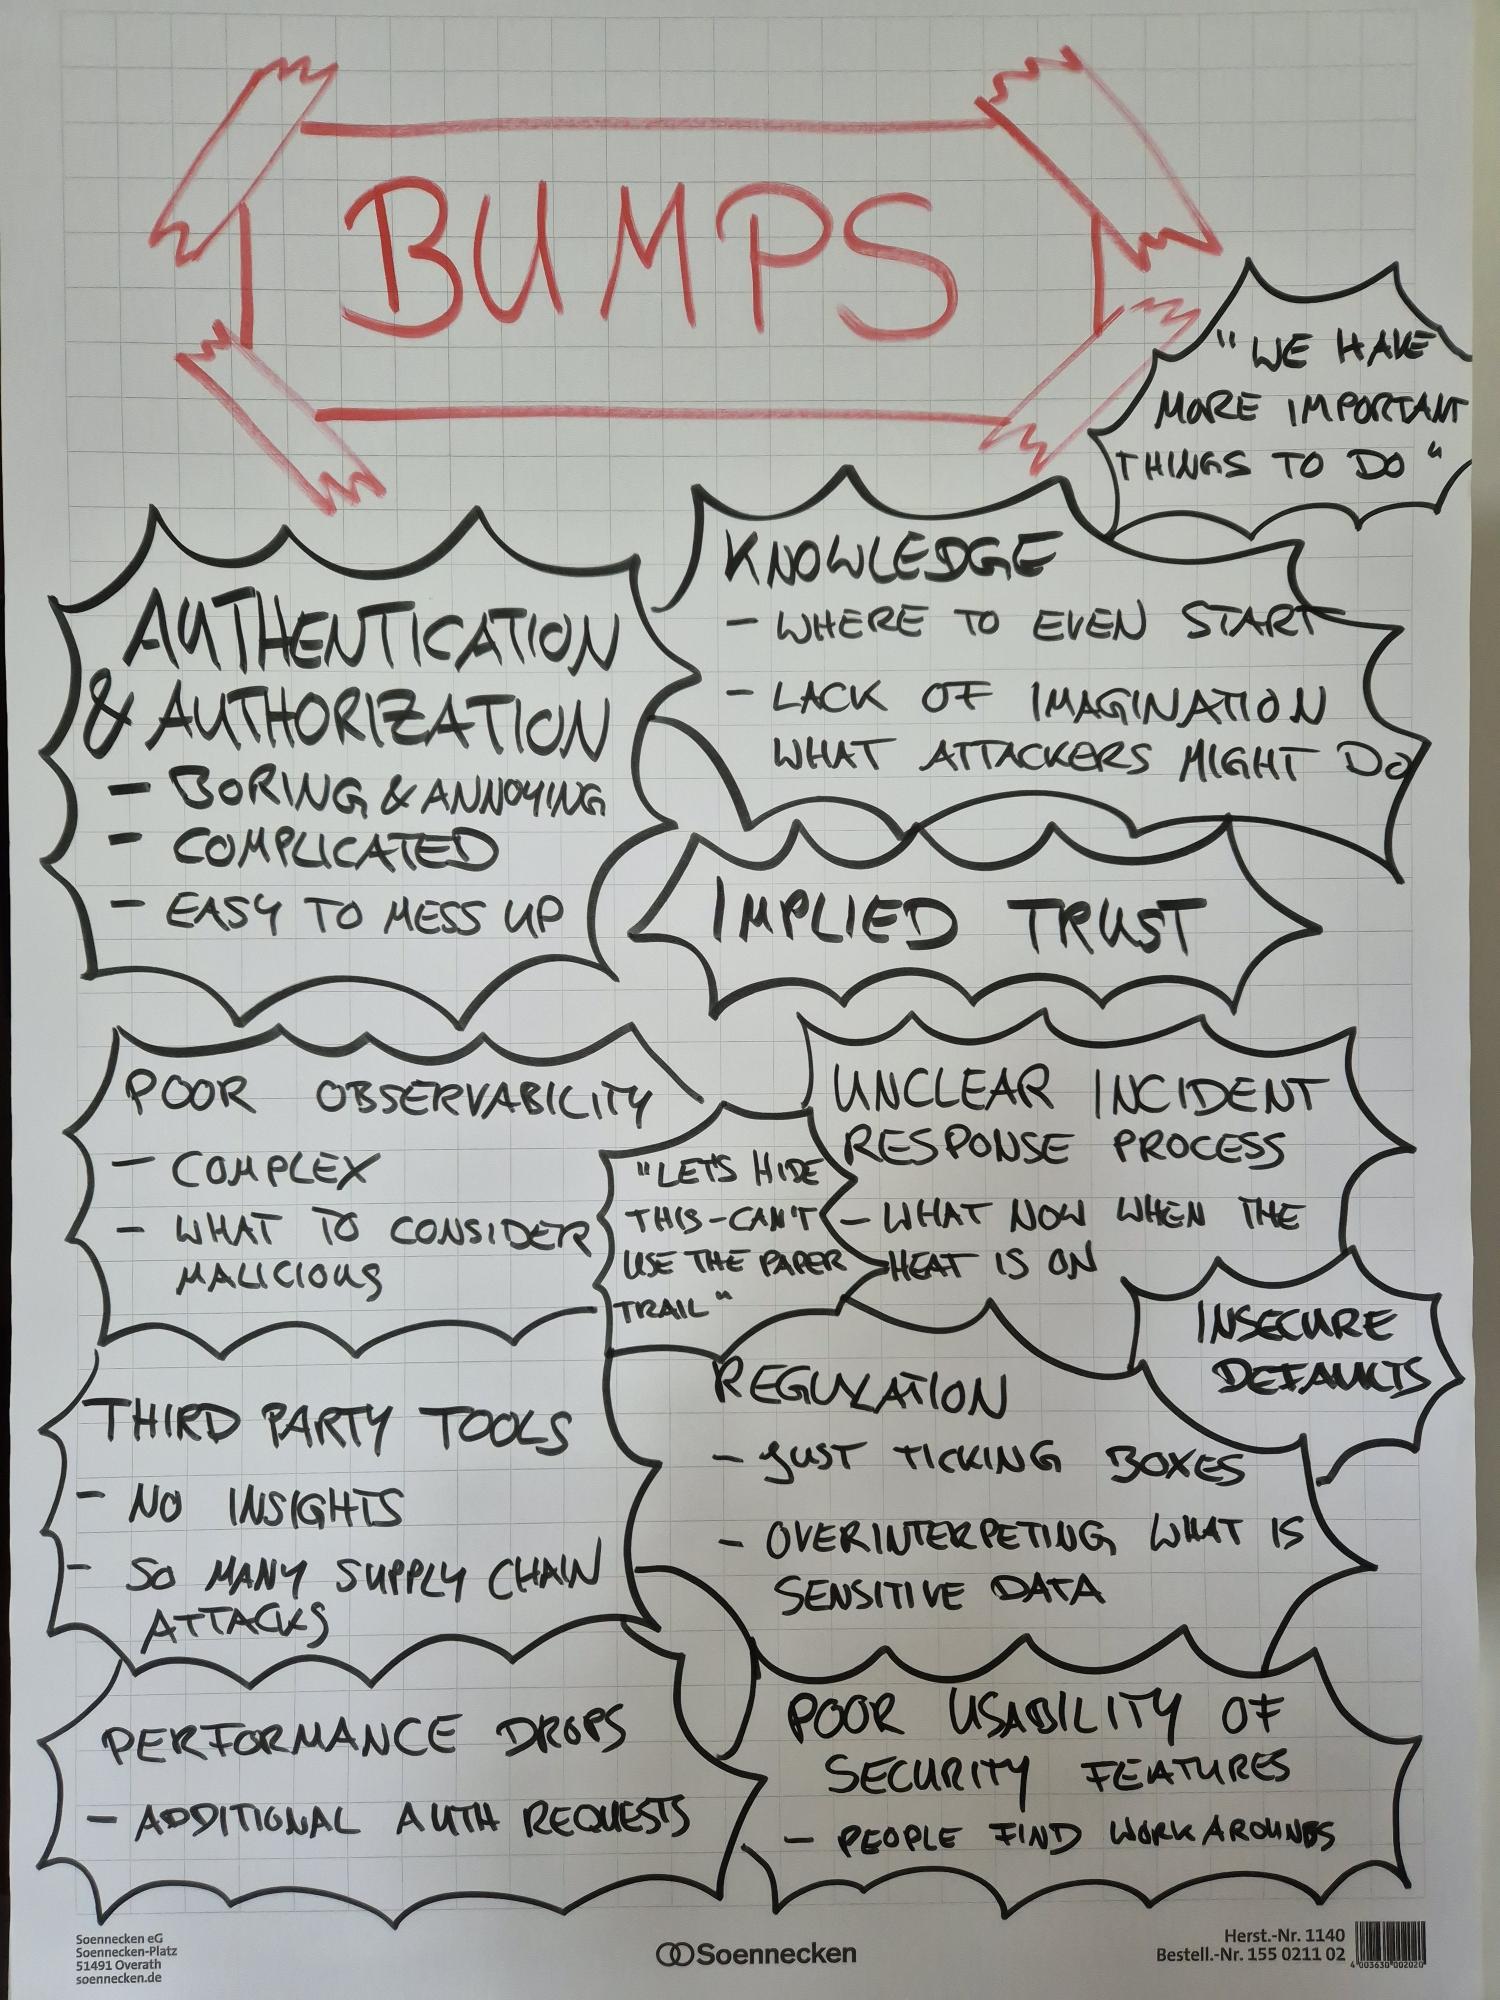 BUMPS
"WE HAVE
MORE IMPORTANT
THINGS TO DO"
AUTHENTICATION
& AUTHORIZATION
- BORING & ANNOYING
- COMPLICATED
- EASY TO MESS UP
KNOWLEDGE
- WHERE TO EVEN START
- LACK OF IMAGINATION
WHAT ATTACKERS MIGHT DO
IMPLIED TRUST
POOR OBSERVABILITY
- COMPLEX
- WHAT TO CONSIDER
MALICIOUS
"LETS HIDE
THIS - CAN'T
USE THE PAPER
TRAIL"
UNCLEAR INCIDENT
RESPONSE PROCESS
- WHAT NOW WHEN THE
HEAT IS ON
INSECURE
DEFAULTS
THIRD PARTY TOOLS
- NO INSIGHTS
- SO MANY SUPPLY CHAIN
ATTACKS
REGULATION
- JUST TICKING BOXES
- OVERINTERPETING WHAT IS
SENSITIVE DATA
PERFORMANCE DROPS
- ADDITIONAL AUTH REQUESTS
POOR USABILITY OF
SECURITY FEATURES
- PEOPLE FIND WORKAROUNDS
Soennecken eG
Soennecken-Platz
51491 Overath
soennecken.de
Soennecken
Herst.-Nr. 1140
Bestell.-Nr. 155 0211 02
4 003630 002020